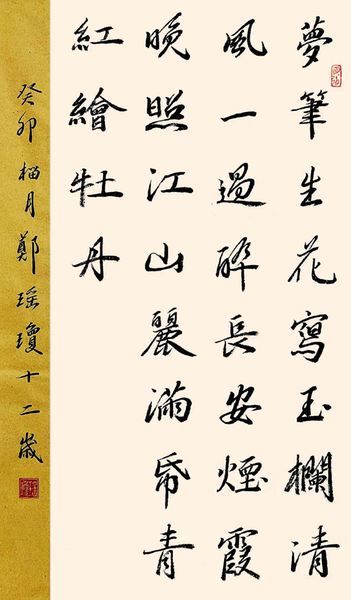 夢筆生花寫玉欄清
風一過醉長安煙霞
晚照江山麗滿帋青
紅繪牡丹
癸卯榴月鄭瑤瓊十二歲